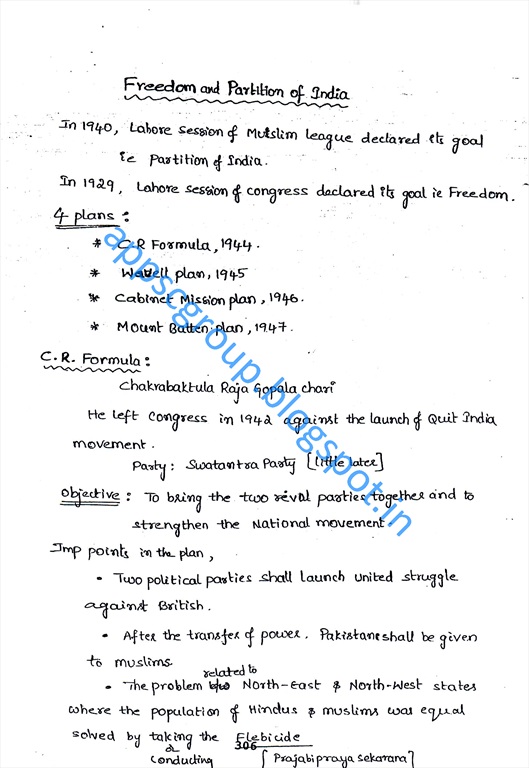 Freedom and Partition of India
In 1940, Lahore session of Muslim league declared its goal
ie Partition of India.
In 1929, Lahore session of congress declared its goal ie Freedom.
4 plans :
* C.R Formula, 1944.
* Wavell plan, 1945
* Cabinet Mission plan, 1946.
* Mount Batten plan, 1947.
C.R. Formula :
Chakrabaktula Raja Gopala chari
He left Congress in 1942 against the launch of Quit India
movement.
Party : Swatantra Party [little later]
Objective : To bring the two reval parties together and to
strengthen the National movement.
Imp points in the plan,
• Two political parties shall launch united struggle
against British.
• After the transfer of power. Pakistane shall be given
to muslims.
related to
• The problem North-East & North-West states
where the population of Hindus & muslims was equal
solved by taking the Flebicide
306
conducting [Prajabipraya sekarana]
appscgroup.blogspot.in